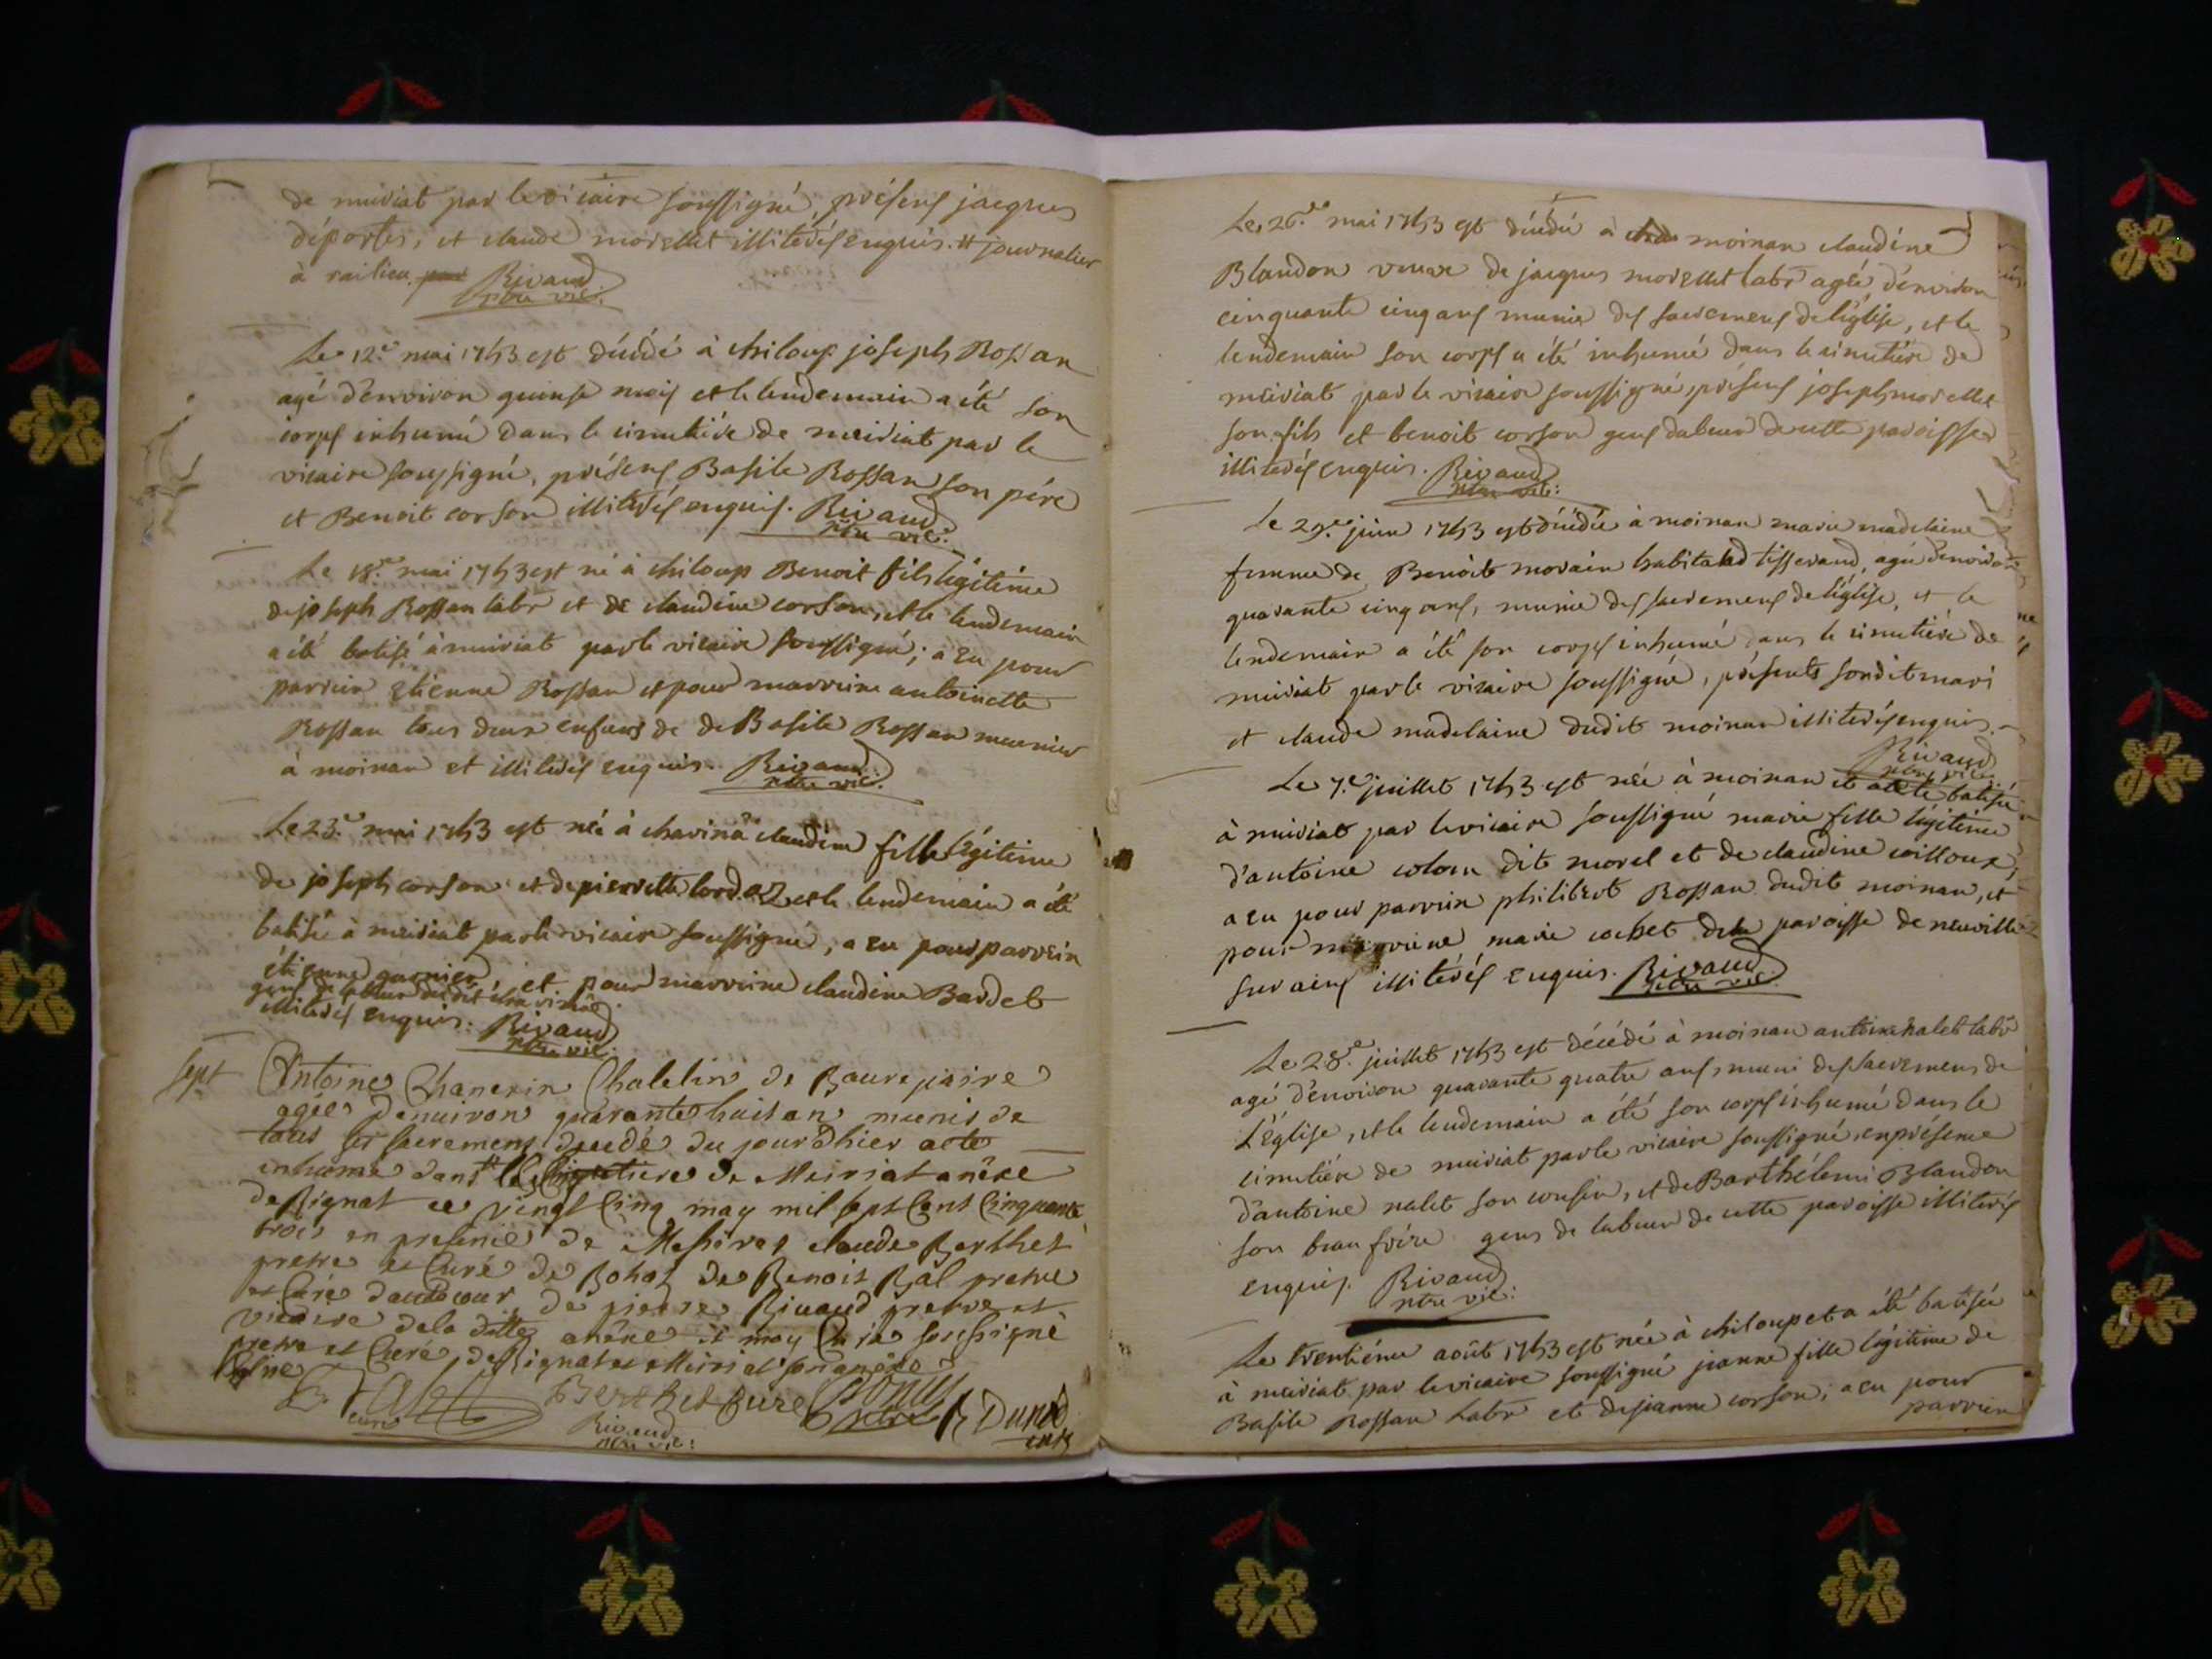 de meiriat par le vicaire soussigné, présens jacques
déportes, et claude morellet illiterés enquis. # journalier
à railieu. Rivaud
ptre vic:
Le 12.e mai 1753 est décédé à chiloup joseph Rossan
agé d'environ quinse mois et le lendemain a été son
corps inhumé dans le cimetiére de meiriat par le
vicaire soussigné, présens Basile Rossan son pére
et Benoit corson illiterés enquis. Rivaud
ptre vic:
Le 18.e mai 1753 est né à chiloup Benoit fils légitime
de joseph Rossan labr et de claudine corson, et le lendemain
a été batisé à meiriat par le vicaire soussigné; a eu pour
parrein Etienne Rossan et pour marreine antoinette
Rossan tous deux enfans de de Basile Rossan meunier
à moinan et illiterés enquis. Rivaud
ptre vic:
Le 23.e mai 1753 est née à chavinã claudine fille légitime
de joseph corson et de pierrette et le lendemain a été
batisée à meiriat par le vicaire soussigné, a eu pour parrein
étienne garnier et pour marreine claudine Bardet
gens de labeur dudit
illiterés enquis. Rivaud
ptre vic:
sept Antoine Chanerin Chatelin de Baurepaire
agée denuiron quarante huit an munis de
tous ses sacremens decedé du jour dhier a ete
inhumé dans le Cimetiere de Meiriat anêxe
de Rignat ce vingt Cinq may mil sept Cent Cinquante
trois en presence de Messires claude Berthet
pretre et Curé de Bohas de Benoit Bâl pretre
et Curé dautecour de pierre Rivaud pretre et
vicaire dela ditte anêxe et moy Curé soussigné
pretre et Curé de Rignat et Meiriat son anêxe
Berthet Cure
curé
Rivaud
ptre vic:
Le 26.e mai 1753 est décédée à moinan claudine
Blandon veuve de jacques morellet labr agée d'environ
cinquante cinq ans munie des sacremens de l'église, et le
lendemain son corps a été inhumé dans le cimetiére de
meiriat par le vicaire soussigné, présens joseph morellet
son fils et benoit corson gens de labeur de cette paroisse
illiterés enquis. Rivaud
ptre vic:
Le 29.e juin 1753 est décédée à moinan marie madelaine
femme de Benoit morain habitand tisserand, agée d'environ
quarante cinq ans, munie des sacremens de l'église, et le
lendemain a été son corps inhumé dans le cimetiére de
meiriat par le vicaire soussigné, présents sondit mari
et claude madelaine dudit moinan illiterés enquis.
Rivaud
ptre vic:
Le 7.e juillet 1753 est née à moinan et a été batisée
à meiriat par le vicaire soussigné marie fille légitime
d'antoine colom dit morel et de claudine
a eu pour parrein philibert Rossan dudit moinan, et
pour marreine marie cochet de la paroisse de neuville
sur ains illiterés enquis. Rivaud
ptre vic:
Le 28.e juillet 1753 est décédé à moinan antoine nalet labr
agé d'environ quarante quatre ans, muni des sacremens de
L'église, et le lendemain a été son corps inhumé dans le
cimetiére de meiriat par le vicaire soussigné, en présence
d'antoine nalet son cousin, et de Barthélemi Blandon
son beau frére gens de labeur de cette paroisse illiterés
enquis. Rivaud
ptre vic:
Le trentiéme août 1753 est née à chiloup et a été batisée
à meiriat par le vicaire soussigné jeanne fille légitime de
Basile Rossan Labr et de jeanne corson; a eu pour
parrein